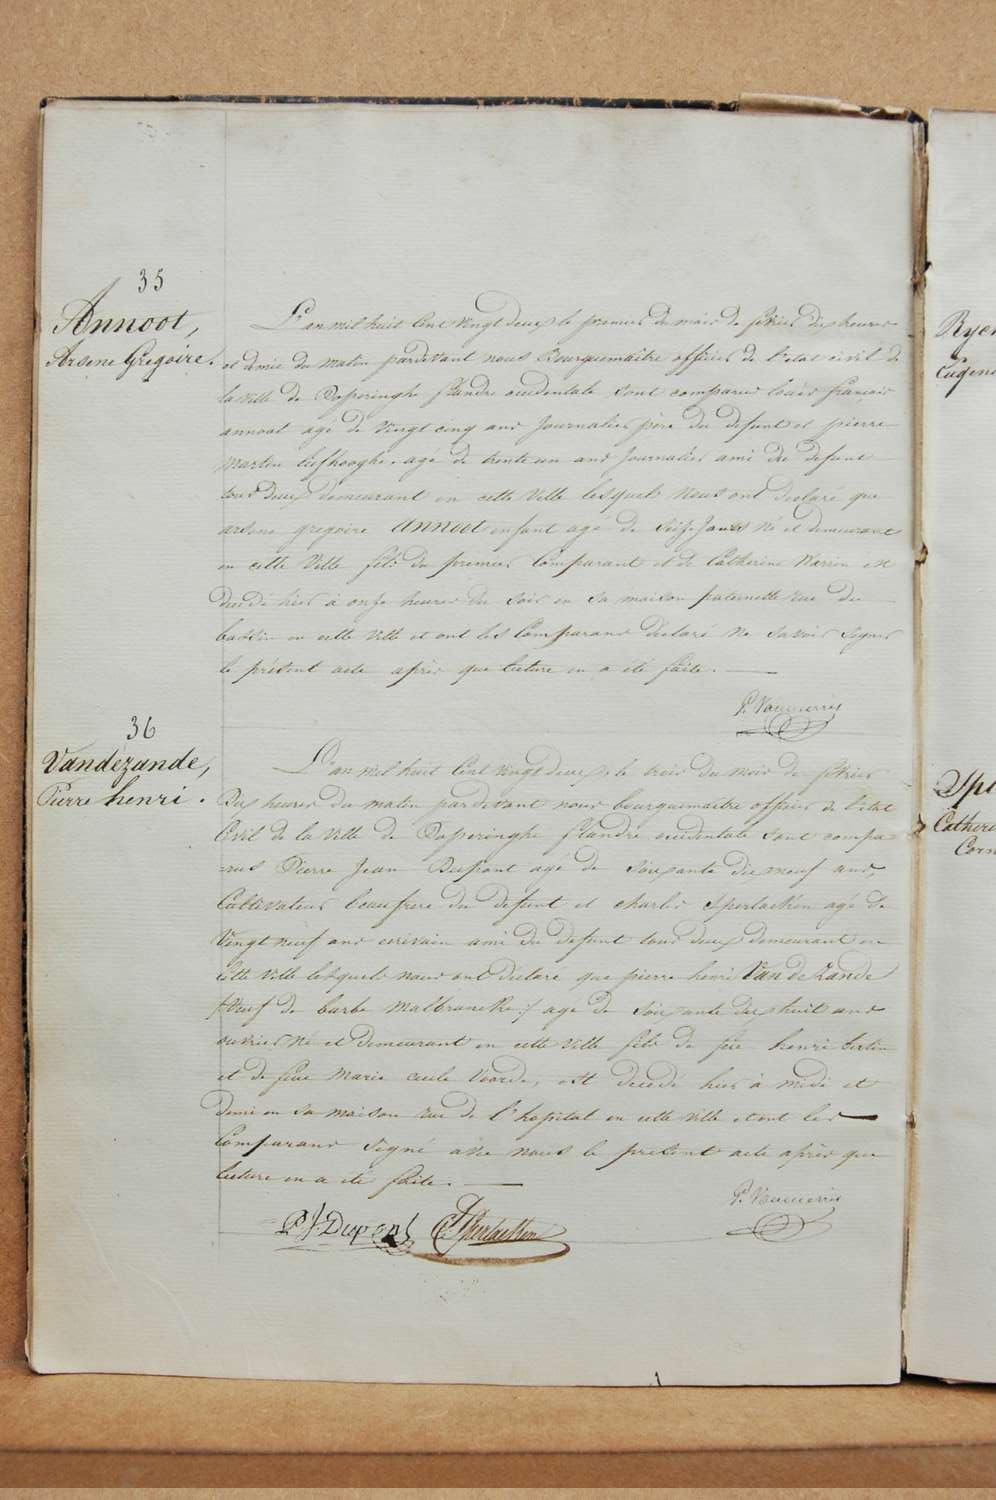 35
Annoot,
Arsene Gregoire.
L'an mil huit Cent Vingt deux le premier du mois de fevrier dix heures
et demie du matin pardevant nous Bourguemaitre officier de l'etat civil de
la ville de Poperinghe flandre occidentale sont comparus louis françois
annoot agé de Vingt cinq ans Journalier père du defunt et pierre
martin liefhooghe agé de trente un ans Journalier ami du defunt
tous deux demeurant en cette Ville lesquels Nous ont declaré que
arsene gregoire Annoot enfant agé de Seize Jours Né et demeurant
en cette Ville fils du premier Comparant et de Catherine Warrin est
decedé hier à onze heures du soir en sa maison paternelle rue du
bassin en cette Ville et ont les Comparans declaré Ne savoir signer
le présent acte après que lecture en a été faite.
36
Vandezande,
Pierre henri.
L'an mil huit Cent Vingt deux, le trois du mois de fevrier
Dix heures du matin pardevant nous bourguemaitre officier de l'etat
Civil de la Ville de Poperinghe flandre occidentale sont compa-
-rus Pierre Jean Dupont agé de Soixante dix neuf ans,
Cultivateur beaufrere du defunt et charles Sperlaeken agé de
Vingt neuf ans ecrivain ami du defunt tous deux demeurant en
Cette Ville lesquels nous ont déclaré que pierre henri Van de Zande
/:Veuf de barbe Malbrancke:/ agé de Soixante dix huit ans
ouvrier Né et demeurant en cette Ville fils de feu henri
et de feue Marie cecile Voorde, est decedé hier à midi et
Demi en sa maison rue de l'hopital en cette Ville et ont les
Comparans signé avec nous le présent acte après que
lecture en a été faite.
P. J. Dupont
C Sperlaeken
Ryck
Eugene
Spe
Catheri
Corn